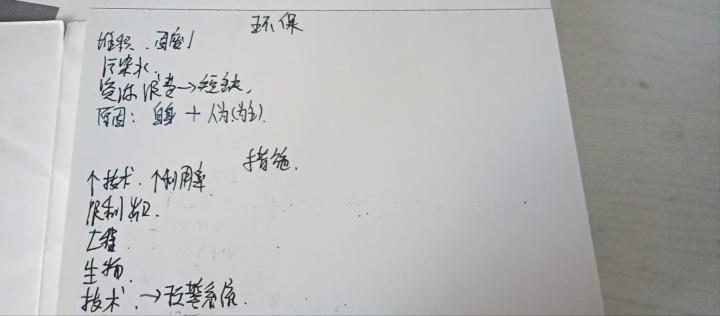 环保
堆积、
污染水、
资源浪费→短缺,
原因: 自身 + 人为(为主).
措施.
个技术、个利用率
限制
工程
生物
技术、→预警系统.